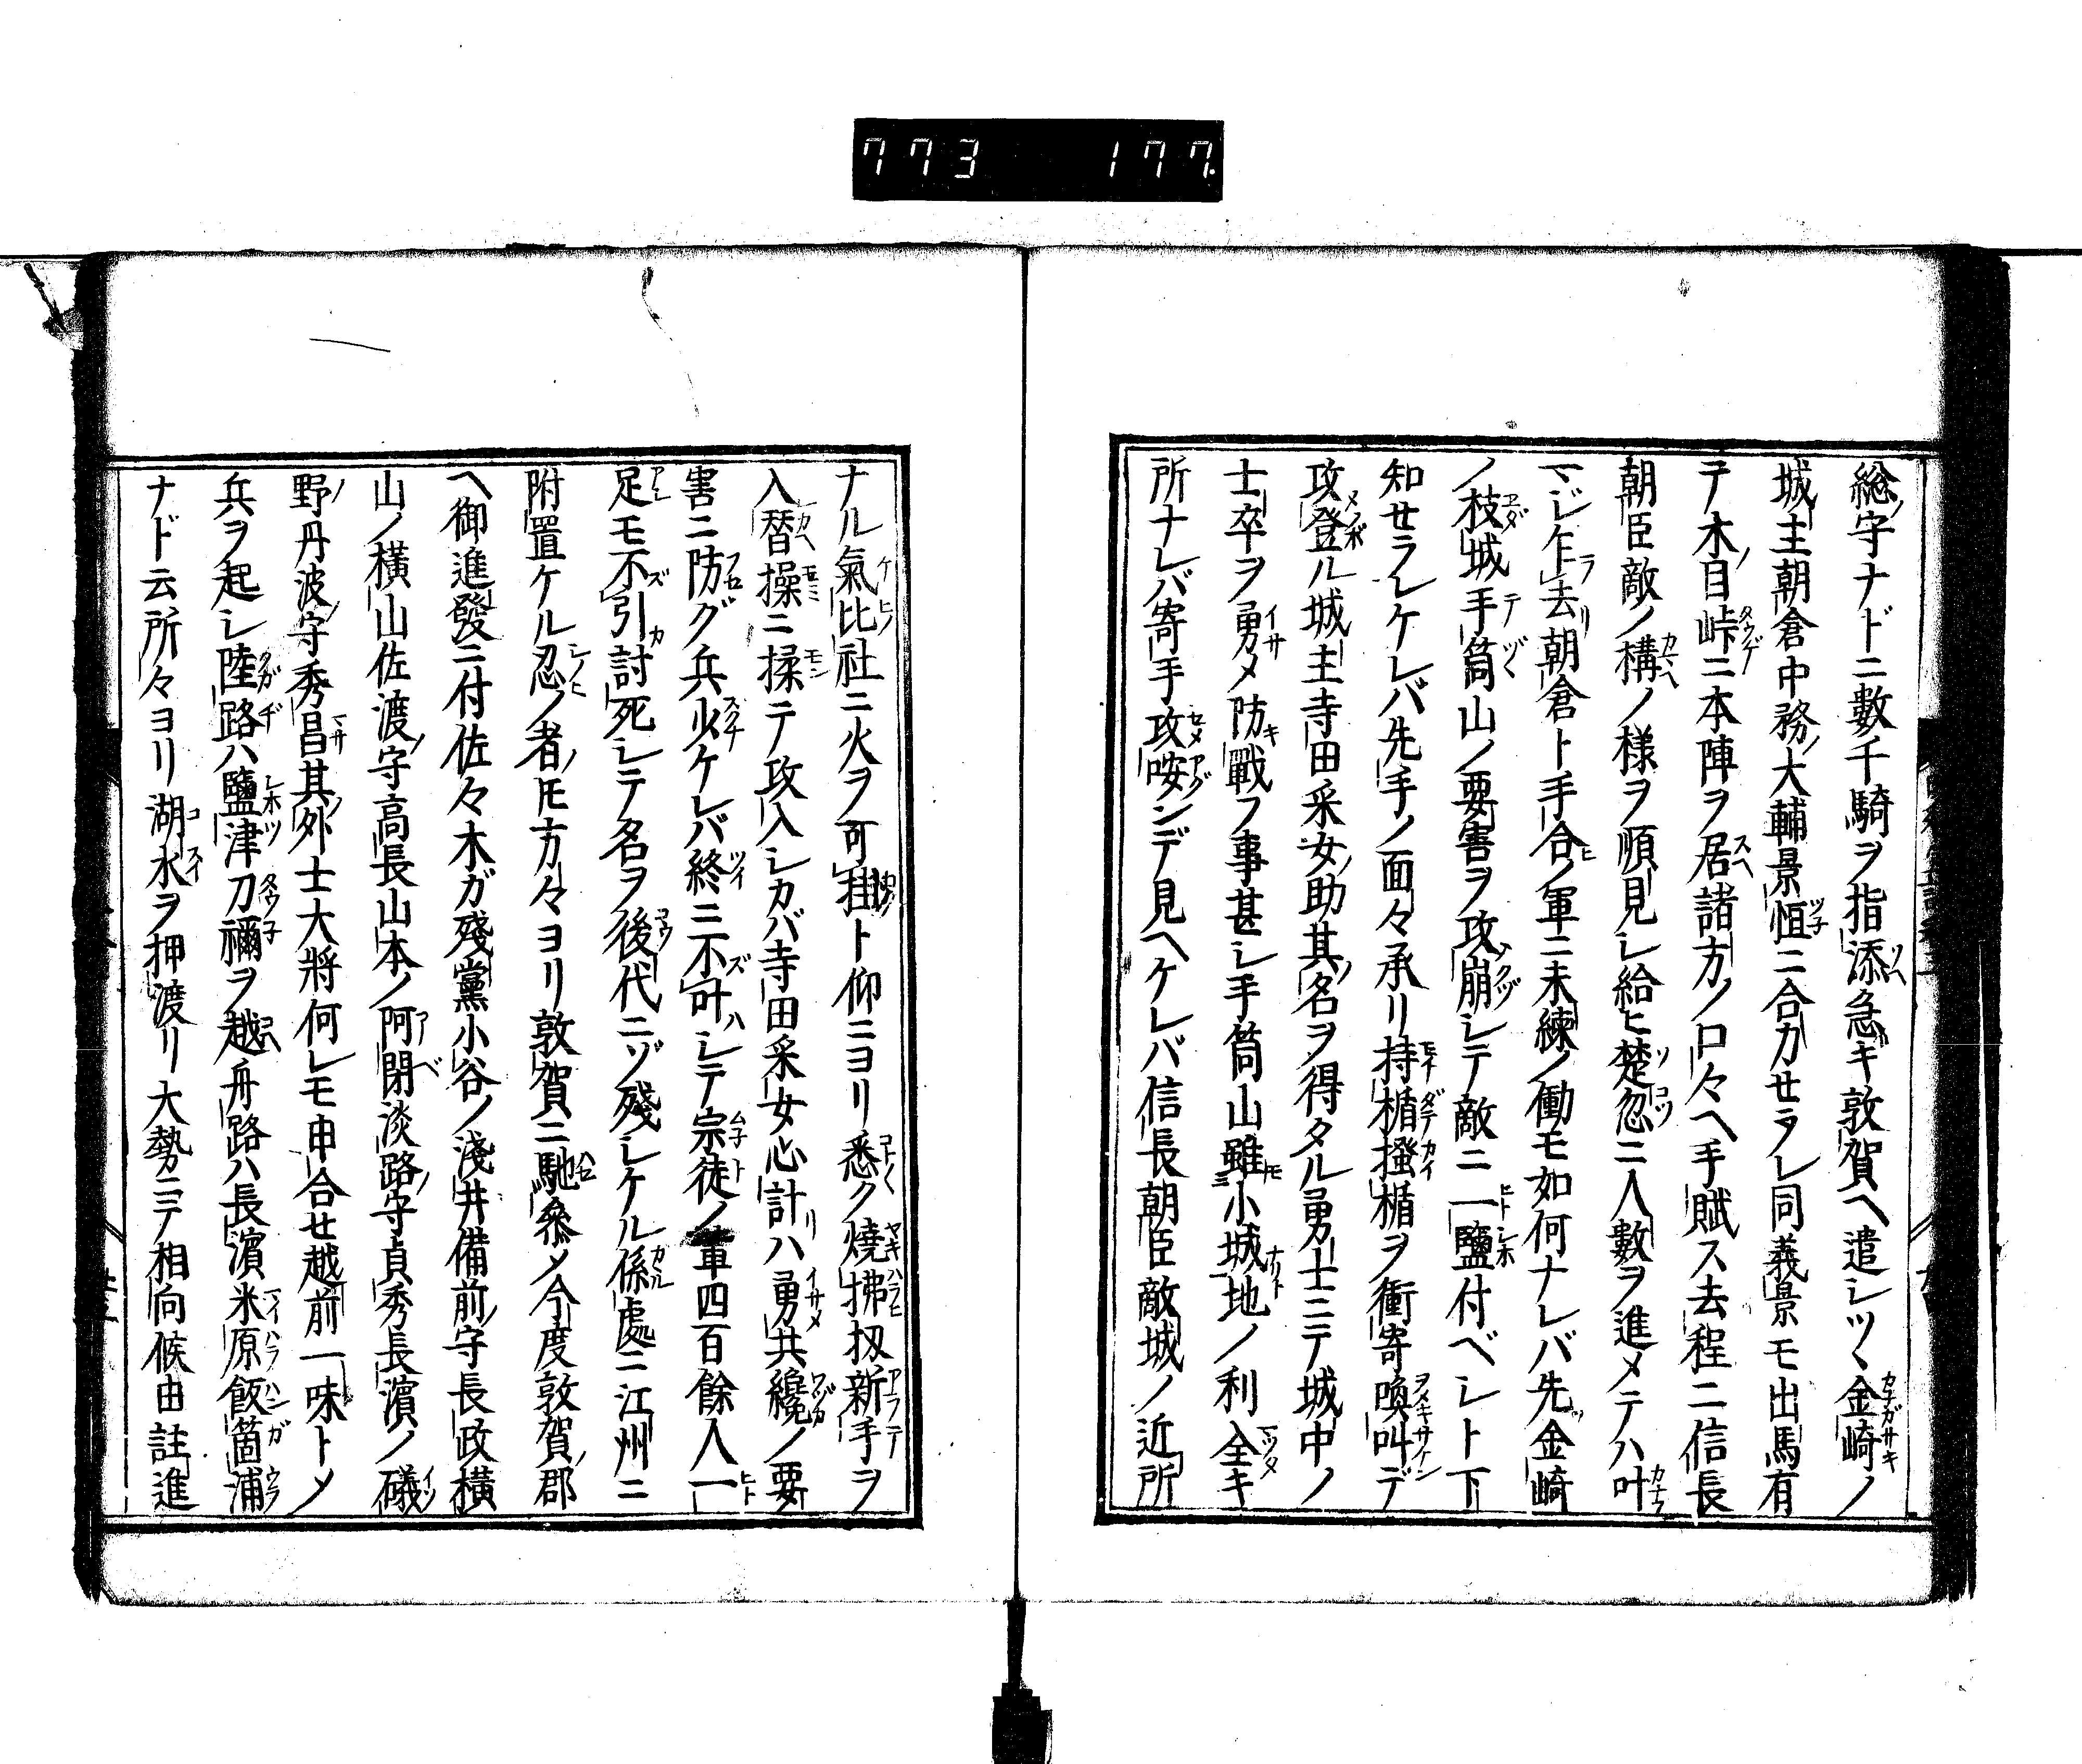 773 177
総守ナドニ數千騎ヲ指添急ギ敦賀ヘ遣シツヽ金崎ノ
城主朝倉中務大輔景恒ニ合力セラレ同義景モ出馬有
テ木ノ目峠ニ本陣ヲ居諸方ノ口々ヘ手賦ス去程ニ信長
朝臣敵ノ構ノ様ヲ順見シ給ヒ楚忽ニ人數ヲ進メテハ叶
マジケト去朝倉ト手合ノ軍ニ未練ノ働モ如何ナレバ先金崎
ノ枝城手筒山ノ要害ヲ攻崩シテ敵ニ一鹽付ベシト下
知セラレケレバ先手ノ面々承リ持楯搔楯ヲ衝寄喚叫デ
攻登ル城主寺田采女助其名ヲ得タル勇士ニテ城中ノ
士卒ヲ勇メ防戰フ事甚シ手筒山雖小城地ノ利全キ
所ナレバ寄手攻咹ンデ見ヘケレバ信長朝臣敵城ノ近所
ナル氣比社ニ火ヲ可掛ト仰ニヨリ悉ク燒拂扨新手ヲ
入替操ニ揉テ攻入シカバ寺田采女心計ハ勇共纔ノ要
害ニ防グ兵少ケレバ終ニ不叶シテ宗徒ノ軍四百餘人一
足モ不引討死シテ名ヲ後代ニゾ殘シケル係處ニ江州ニ
附置ケル忍ノ者ノ𪜈方々ヨリ敦賀ニ馳參メ今度敦賀郡
ヘ御進發ニ付佐々木ガ殘黨小谷ノ淺井備前守長政橫
山ノ橫山佐渡守高長山本ノ阿閉淡路守貞秀長濱ノ礒
野丹波守秀昌其外士大將何レモ申合セ越前一味トメ
兵ヲ起シ陸路ハ鹽津刀禰ヲ越舟路ハ長濱米原飯箇浦
ナド云所々ヨリ湖水ヲ押渡リ大勢ニテ相向候由註進